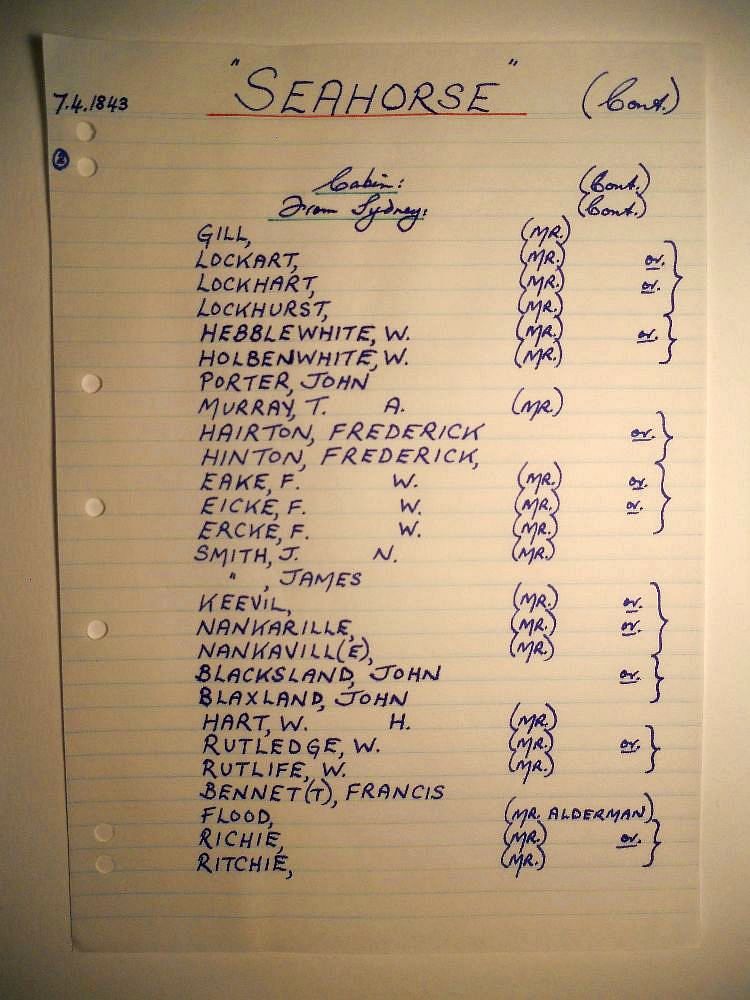 "SEAHORSE" (Cont.)
7.4.1843
2
Cabin: (Cont.)
From Sydney: (Cont.)
GILL, (MR.)
LOCKART, (MR.) or.
LOCKHART, (MR.) or.
LOCKHURST, (MR.)
HEBBLEWHITE, W. (MR.) or.
HOLBENWHITE, W. (MR.)
PORTER, JOHN
MURRAY, T. A. (MR.)
HAIRTON, FREDERICK or.
HINTON, FREDERICK,
EAKE, F. W. (MR.) or.
EICKE, F. W. (MR.) or.
ERCKE, F. W. (MR.)
SMITH, J. N. (MR.)
" , JAMES
KEEVIL, (MR.) or.
NANKARILLE, (MR.) or.
NANKAVILL(E), (MR.)
BLACKSLAND, JOHN or.
BLAXLAND, JOHN
HART, W. H. (MR.)
RUTLEDGE, W. (MR.) or.
RUTLIFE, W. (MR.)
BENNET(T), FRANCIS
FLOOD, (MR. ALDERMAN)
RICHIE, (MR.) or.
RITCHIE, (MR.)